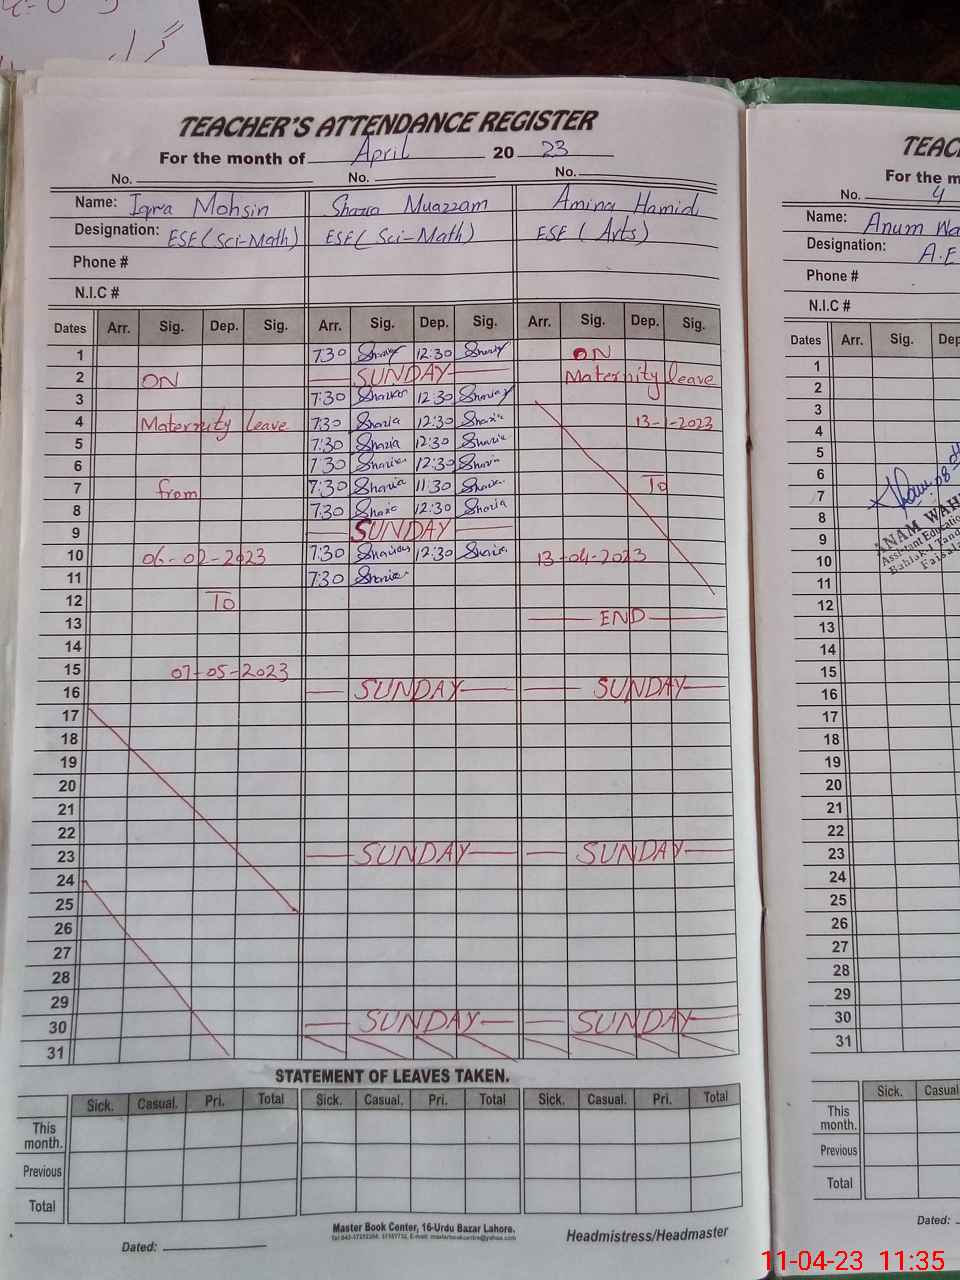 TEACHER'S ATTENDANCE REGISTER
For the month of April 20 23
No. No. No.
Name: Iqra Mohsin Shazia Muazzam Amina Hamid
Designation: ESE (Sci-Math) ESE (Sci-Math) ESE (Arts)
Phone #
N.I.C #
Dates Arr. Sig. Dep. Sig. Arr. Sig. Dep. Sig. Arr. Sig. Dep. Sig.
1 7:30 12:30 ON
2 ON SUNDAY Maternity leave
3 7:30 12:30
4 Maternity leave 7:30 Shazia 12:30 Shazia 13-1-2023
5 7:30 Shazia 12:30 Shazia
6 7:30 Shazia 12:30 Shazia
7 from 7:30 Shazia 11:30 Shazia To
8 7:30 Shazia 12:30 Shazia
9 SUNDAY
10 06-02-2023 7:30 Shazia 12:30 Shazia 13-04-2023
11 7:30 Shazia
12 To
13 END
14
15 07-05-2023
16 SUNDAY SUNDAY
17
18
19
20
21
22
23 SUNDAY SUNDAY
24
25
26
27
28
29
30 SUNDAY SUNDAY
31
STATEMENT OF LEAVES TAKEN.
Sick. Casual. Pri. Total Sick. Casual. Pri. Total Sick. Casual. Pri. Total
This month.
Previous
Total
Master Book Center, 16-Urdu Bazar Lahore.
Dated: Headmistress/Headmaster
TEAC
For the m
No. 4
Name: Anum Wa
Designation: A.E
Phone #
N.I.C #
Dates Arr. Sig. Dep
1
2
3
4
5
6
7
8
9
10
11
12
13
14
15
16
17
18
19
20
21
22
23
24
25
26
27
28
29
30
31
ANAM WAH
Assistant Education
Faisala
Sick. Casual
This month.
Previous
Total
Dated:
11-04-23 11:35